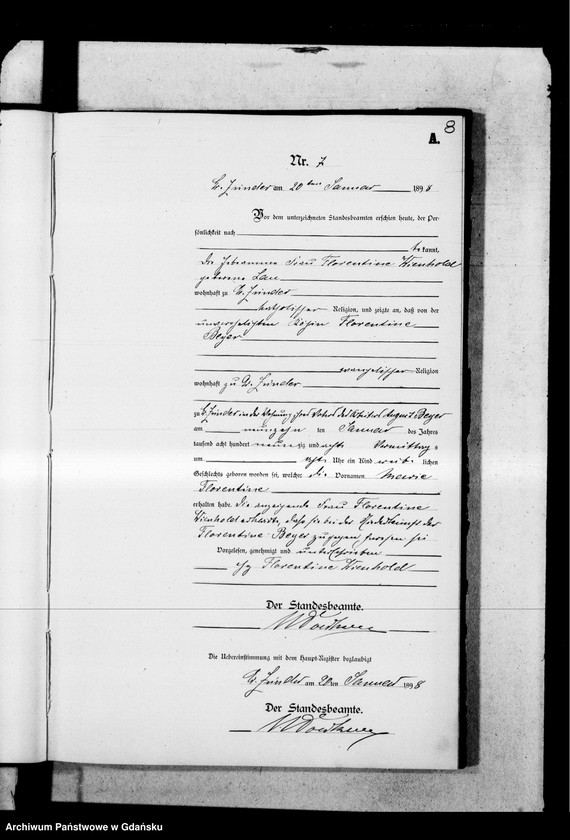 8
A.
Nr. 7
Gr. Zünder am 20ten Januar 1898
Vor dem unterzeichneten Standesbeamten erschien heute, der Per-
sönlichkeit nach
be kannt,
Die Hebeamme Frau Florentine Wienhold
geborene Lau
wohnhaft zu Gr. Zünder
katholischer Religion, und zeigte an, daß von der
unverehelichten Florentine
Beyer
evangelischer Religion
wohnhaft zu Gr. Zünder
zu Gr. Zünder in der Wohnung ihres Vaters des August Beyer
am neunzehn ten Januar des Jahres
tausend acht hundert neun zig und acht Vormittags
um acht Uhr ein Kind weib lichen
Geschlechts geboren worden sei, welches die Vornamen Marie
Florentine
erhalten habe. Die anzeigende Frau Florentine
Wienhold erklärte, dass sie bei der Niederkunft der
Florentine Beyer zugegen gewesen sei
Vorgelesen, genehmigt und unterschrieben
gez Florentine Wienhold
Der Standesbeamte.
Die Uebereinstimmung mit dem Haupt-Register beglaubigt
Gr. Zünder am 20ten Januar 1898
Der Standesbeamte.
Archiwum Państwowe w Gdańsku